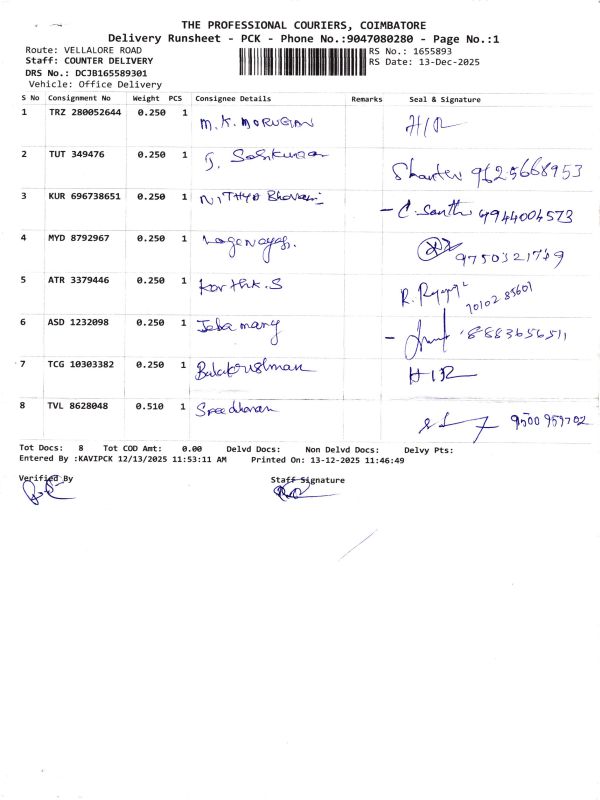 THE PROFESSIONAL COURIERS, COIMBATORE
Delivery Runsheet - PCK - Phone No.:9047080280 - Page No.:1
Route: VELLALORE ROAD
RS No.: 1655893
Staff: COUNTER DELIVERY
RS Date: 13-Dec-2025
DRS No.: DCJB165589301
Vehicle: Office Delivery
S No Consignment No Weight PCS Consignee Details Remarks Seal & Signature
1 TRZ 280052644 0.250 1 M.K. MORUGIAN H/R
2 TUT 349476 0.250 1 9625668953
3 KUR 696738651 0.250 1 NITHYA - C. Santh 9944004573
4 MYD 8792967 0.250 1 9750321749
5 ATR 3379446 0.250 1 Karthik.S R. 70102 85601
6 ASD 1232098 0.250 1 Jeba mary - 8883656511
7 TCG 10303382 0.250 1 Balakrishnan H/R
8 TVL 8628048 0.510 1 Sreedharan 9500 959702
Tot Docs: 8 Tot COD Amt: 0.00 Delvd Docs: Non Delvd Docs: Delvy Pts:
Entered By :KAVIPCK 12/13/2025 11:53:11 AM Printed On: 13-12-2025 11:46:49
Verified By Staff Signature